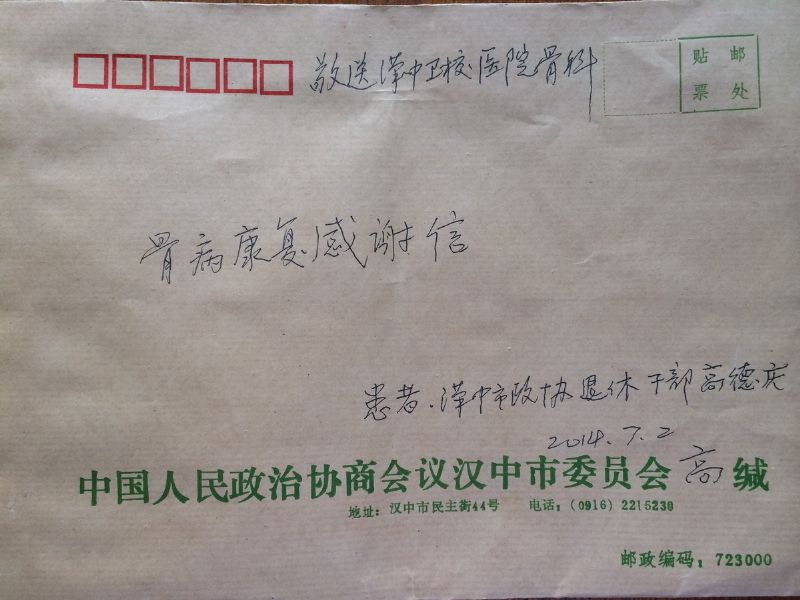 敬送汉中卫校医院骨科
贴邮
票处
骨病康复感谢信
患者：汉中市政协退休干部高德庆
2014.7.2
中国人民政治协商会议汉中市委员会高缄
地址：汉中市民主街44号 电话：（0916）2215230
邮政编码：723000